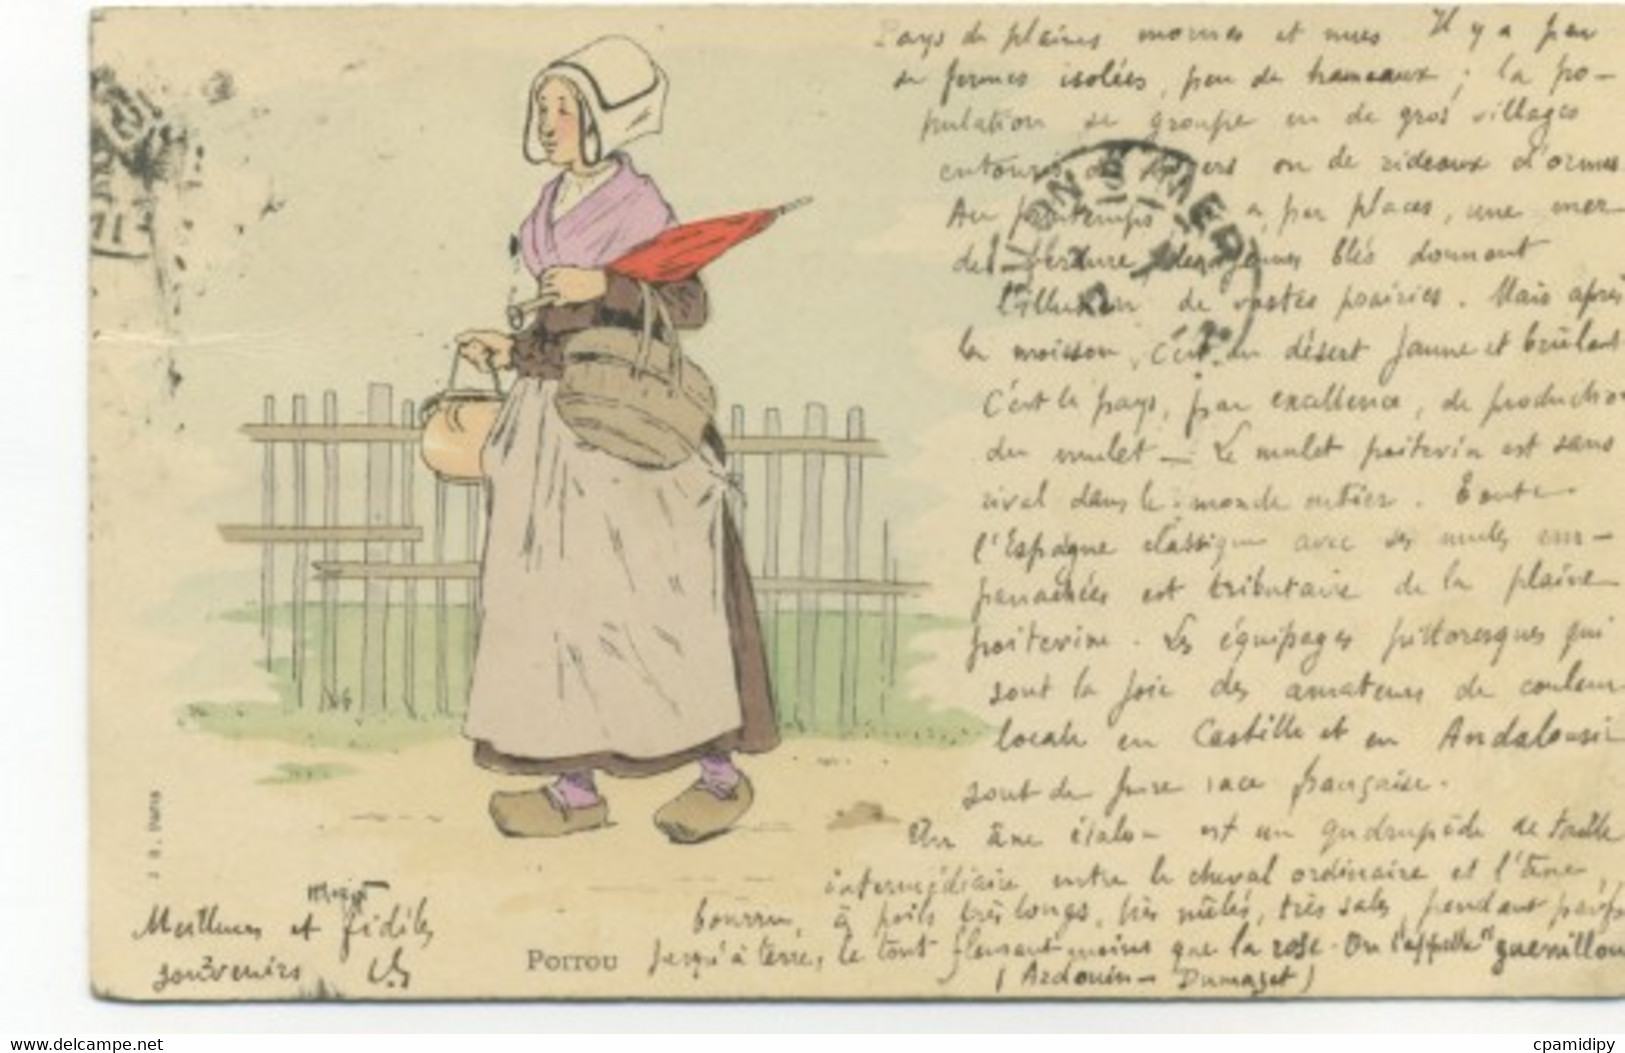 Pays de plaines mornes et nues Il y a peu
de fermes isolées, peu de hameaux ; la po-
pulation se groupe en de gros villages
entourés de ou de rideaux d'ormes
Au printemps a, par places, une mer
de verdure des jeunes blés donnant
l'illusion de vastes prairies. Mais après
la moisson, c'est un désert jaune et brûlant
C'est le pays, par excellence, de production
du mulet - Le mulet poitevin est sans
rival dans le monde entier. Toute
l'Espagne classique avec ses mules em-
panachées est tributaire de la plaine
poitevine. Les équipages pittoresques qui
sont la joie des amateurs de couleur
locale en Castille et en Andalousie
sont de pure race française.
Un âne étalon est un quadrupède de taille
intermédiaire entre le cheval ordinaire et l'âne,
bourru, à poils très longs, très mêlés, très sales, pendant parfois
jusqu'à terre, le tout fleurant moins que la rose. On l'appelle "guenillou
(Ardouin-Dumazet)
Meilleurs et fidèles
souvenirs
POITOU
J. S. PARIS
www.delcampe.net
cpamidipy